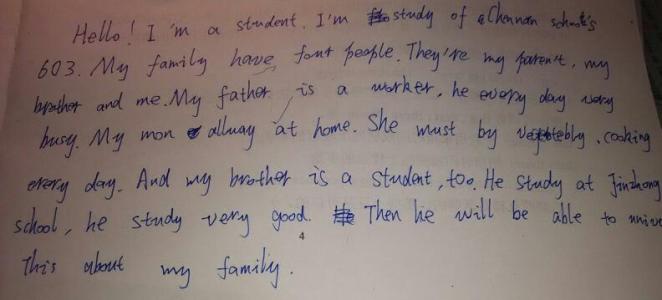 Hello! I'm a student. I'm study of Chennan school's
603. My family have four people. They're my parent, my
brother and me. My father is a worker, he every day very
busy. My mon allway at home. She must by vegetebly, cooking
every day. And my brother is a student, too. He study at Jinzhong
school, he study very good. Then he will be able to univer
This about my family.
4